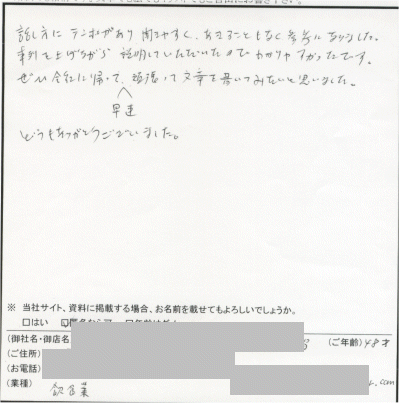 話し方にテンポがあり聞きやすく、あきることもなく参考になりました。
事例を上げながら説明していただいたのでわかりやすかったです。
ぜひ会社に帰って、頑張って文章を書いてみたいと思いました。
早速
どうもありがとうございました。
※ 当社サイト、資料に掲載する場合、お名前を載せてもよろしいでしょうか。
□はい
(御社名・御店名
(ご年齢) 48才
(ご住所)
(お電話)
.com
(業種)